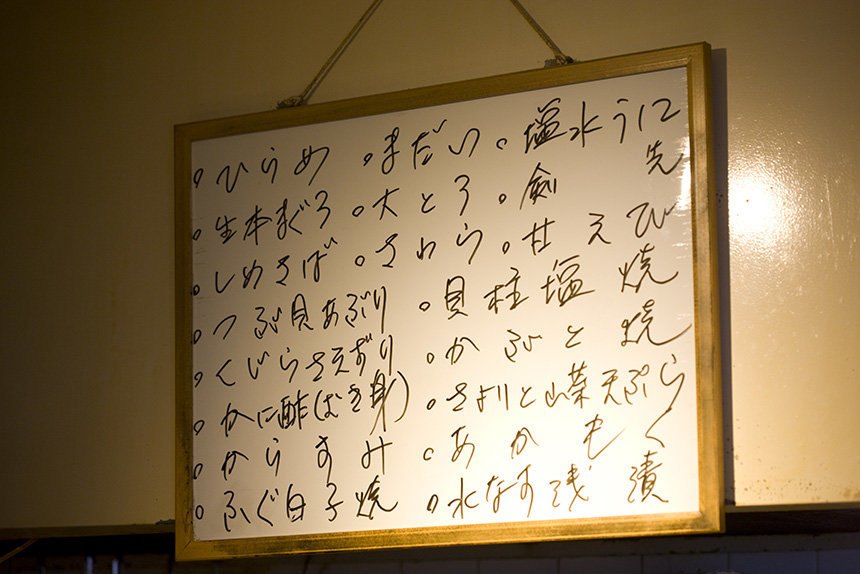 。ひらめ 。まだい 。塩水うに
。生本まぐろ 。大とろ 。剣先
。しめさば 。さわら 。甘えび
。つぶ貝あぶり 。貝柱塩焼
。くじらさえずり 。かぶと焼
。かに酢(むき身) 。さよりと山菜天ぷら
。からすみ 。あかもく
。ふぐ白子焼 。水なす浅漬